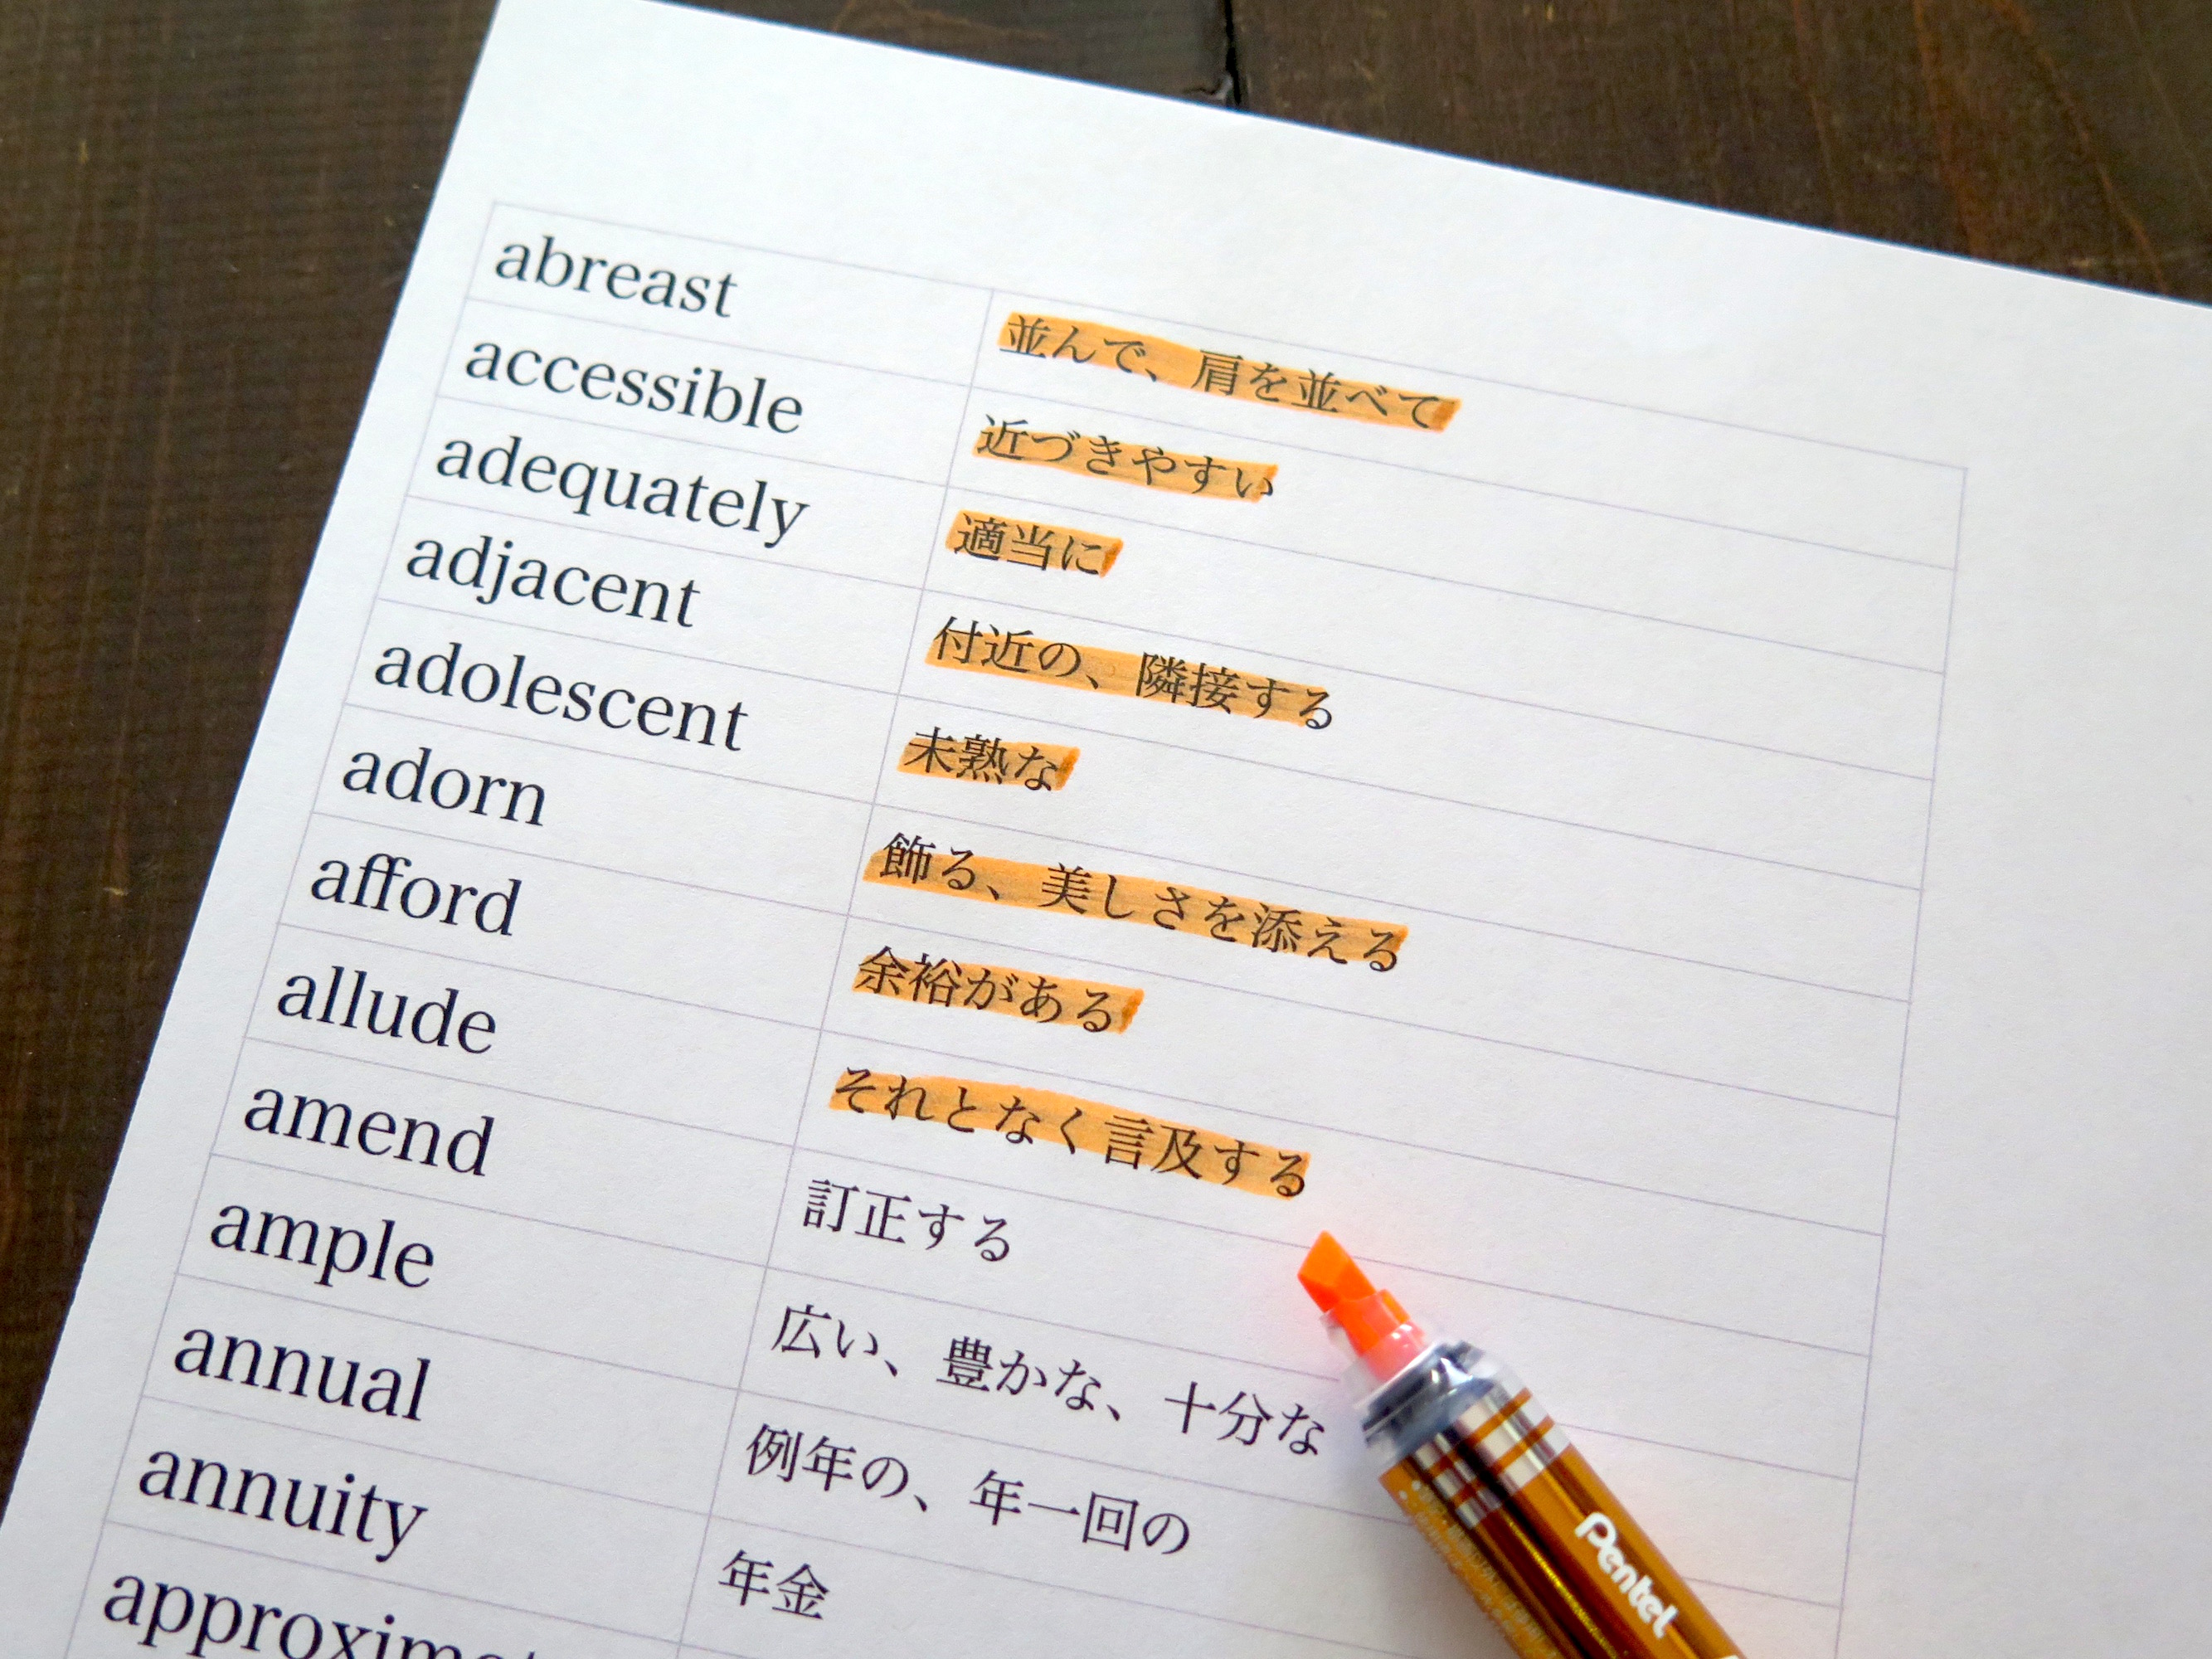 abreast 並んで、肩を並べて
accessible 近づきやすい
adequately 適当に
adjacent 付近の、隣接する
adolescent 未熟な
adorn 飾る、美しさを添える
afford 余裕がある
allude それとなく言及する
amend 訂正する
ample 広い、豊かな、十分な
annual 例年の、年一回の
annuity 年金
Pentel